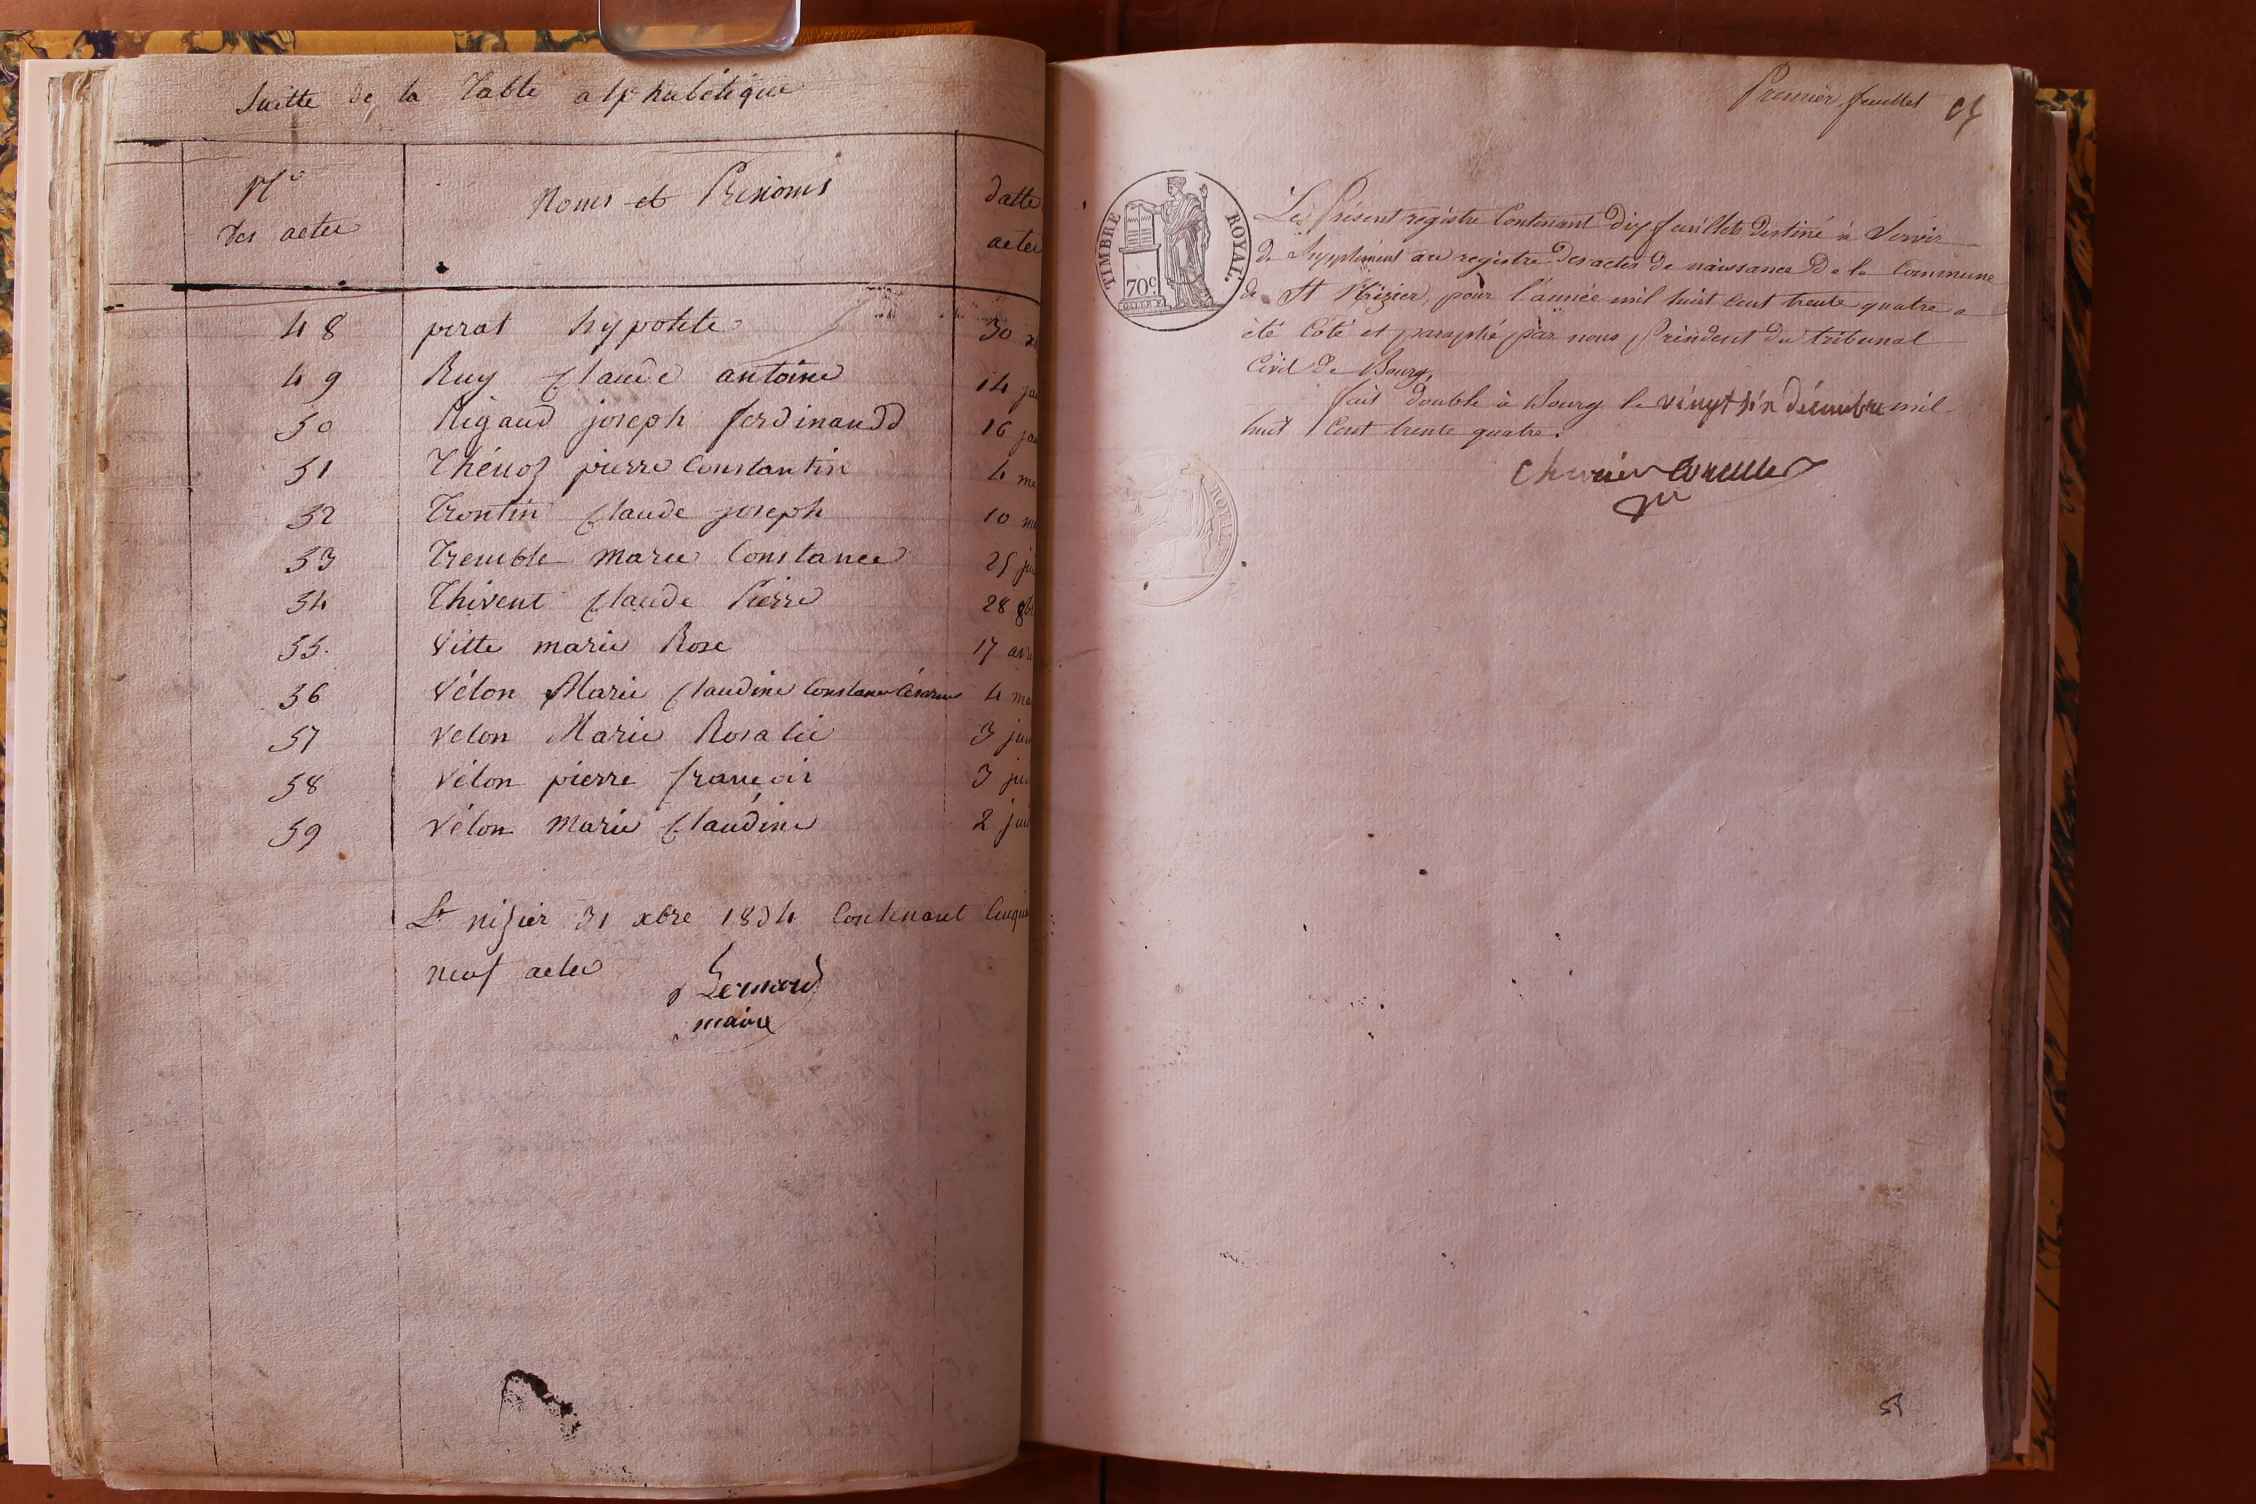 Suitte de la Table alphabétique
Nos des actes
Noms et Prénoms
datte
actes
48 perat hypolite 30
49 Ruy Claude antoine 14 jan
50 Rigaud joseph ferdinandd 16 jan
51 Thénoz pierre Constantin 4 ma
52 Trontin Claude joseph 10
53 Tremble marie Constance 25 jui
54 Thivent Claude Pierre 28 9b
55. Vitte marie Rose 17 avr
56 Vélon Marie Claudine Constance Césarine 4 ma
57 Velon Marie Rosalie 3 jui
58 Vélon pierre françois 3 jui
59 Vélon Marie Claudine 2 jui
St nizier 31 xbre 1834 Contenant Cinqu
neuf actes
Bernard
maire
Premier feuillet
TIMBRE ROYAL.
70c.
Le Présent registre Contenant dix feuillets destiné à Servir
de Supplément au registre des actes de naissance De la Commune
de St Nizier, pour l'année mil huit cent trente quatre a
été Coté et paraphé par nous Président du tribunal
Civil De Bourg,
fait double à Bourg le vingt six décembre mil
huit Cent trente quatre.